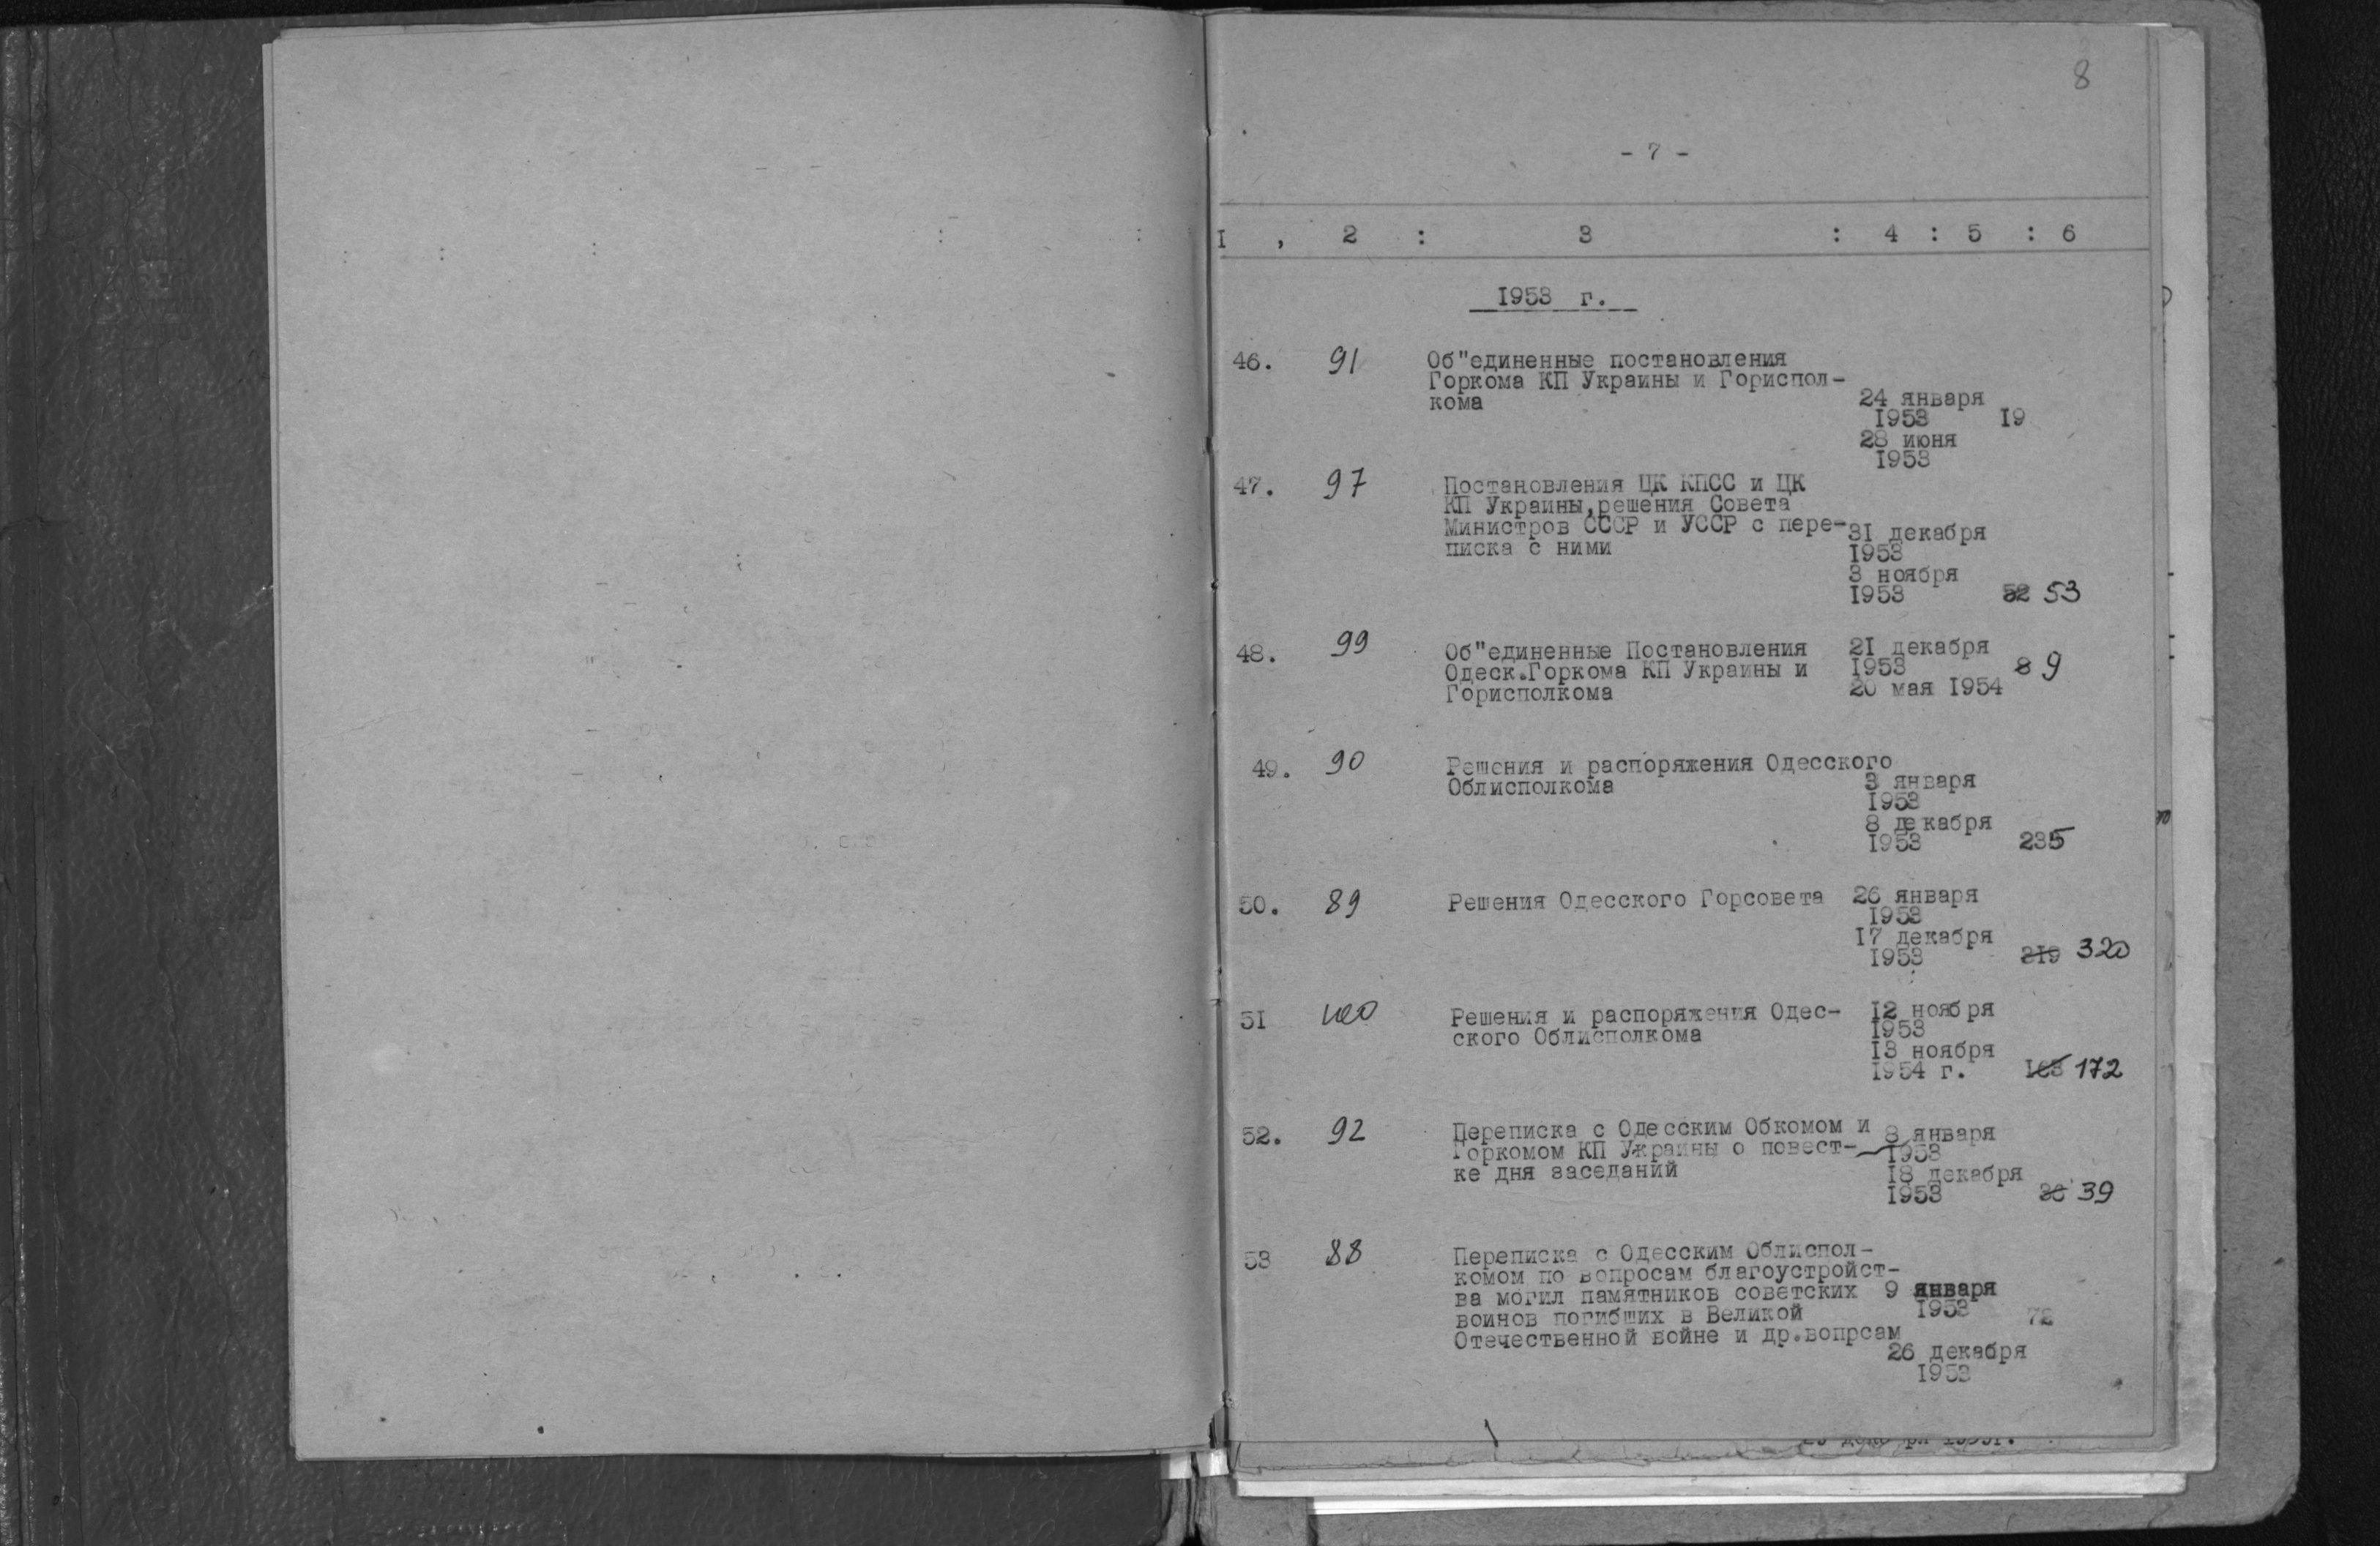 8
- 7 -
I , 2 : 3 : 4 : 5 : 6
1953 г.
46. 91 Об"единенные постановления
Горкома КП Украины и Гориспол-
кома 24 января
1953 19
28 июня
1953
47. 97 Постановления ЦК КПСС и ЦК
КП Украины,решения Совета
Министров СССР и УССР с пере- 31 декабря
писка с ними 1953
3 ноября
1953 52 53
48. 99 Об"единенные Постановления 21 декабря
Одеск.Горкома КП Украины и 1953 8 9
Горисполкома 20 мая 1954
49. 90 Решения и распоряжения Одесского
Облисполкома 3 января
1953
8 декабря
1953 235
50. 89 Решения Одесского Горсовета 26 января
1953
17 декабря
1953 319 320
51 100 Решения и распоряжения Одес- 12 ноября
ского Облисполкома 1953
13 ноября
1954 г. 172
52. 92 Переписка с Одесским Обкомом и 8 января
Горкомом КП Украины о повест- 1953
ке дня заседаний 18 декабря
1953 39
53 88 Переписка с Одесским Облиспол-
комом по вопросам благоустройст-
ва могил памятников советских 9 января
воинов погибших в Великой 1953 72
Отечественной войне и др.вопрсам
26 декабря
1953